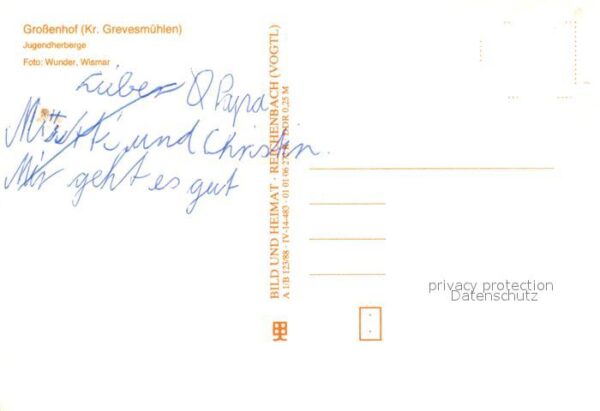 Großenhof (Kr. Grevesmühlen)
Jugendherberge
Foto: Wunder, Wismar
Lieber Papa
Mutti und Christin.
Mir geht es gut
BILD UND HEIMAT · REICHENBACH (VOGTL)
A 1/B 123/88 · IV-14-483 · 01 01 06 2 DDR 0,25 M
privacy protection
Datenschutz